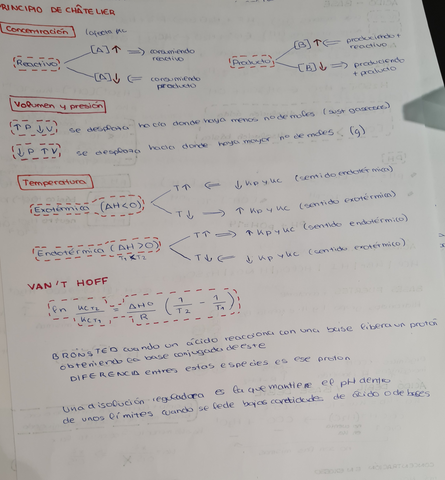 PRINCIPIO DE CHÂTELIER
Concentración
Reactivo
[A]↑ ⇒ consumiendo reactivo
[A]↓ ⇐ consumiendo producto
Producto
[B]↑ ⇐ produciendo + reactivo
[B]↓ ⇒ produciendo + producto
Volumen y presión
↑P ↓V se desplaza hacia donde haya menos no de moles (sist gaseosos)
↓P ↑V se desplaza hacia donde haya mayor no de moles (g)
Temperatura
Exotérmica (ΔH<0)
T↑ ⇐ ↓ Kp y Kc (sentido endotérmico)
T↓ → ↑ Kp y Kc (sentido exotérmico)
Endotérmica (ΔH>0)
T↑ ⇒ ↑ Kp y Kc (sentido endotérmico)
T↓ ⇐ ↓ Kp y Kc (sentido exotérmico)
VAN'T HOFF
BRÖNSTED cuando un ácido reacciona con una base libera un protón
obteniendo la base conjugada de este
DIFERENCIA entres estas especies es ese proton
Una disolución reguladora es la que mantiene el pH dentro
de unos límites cuando se le de bajas cantidades de ácido o de bases